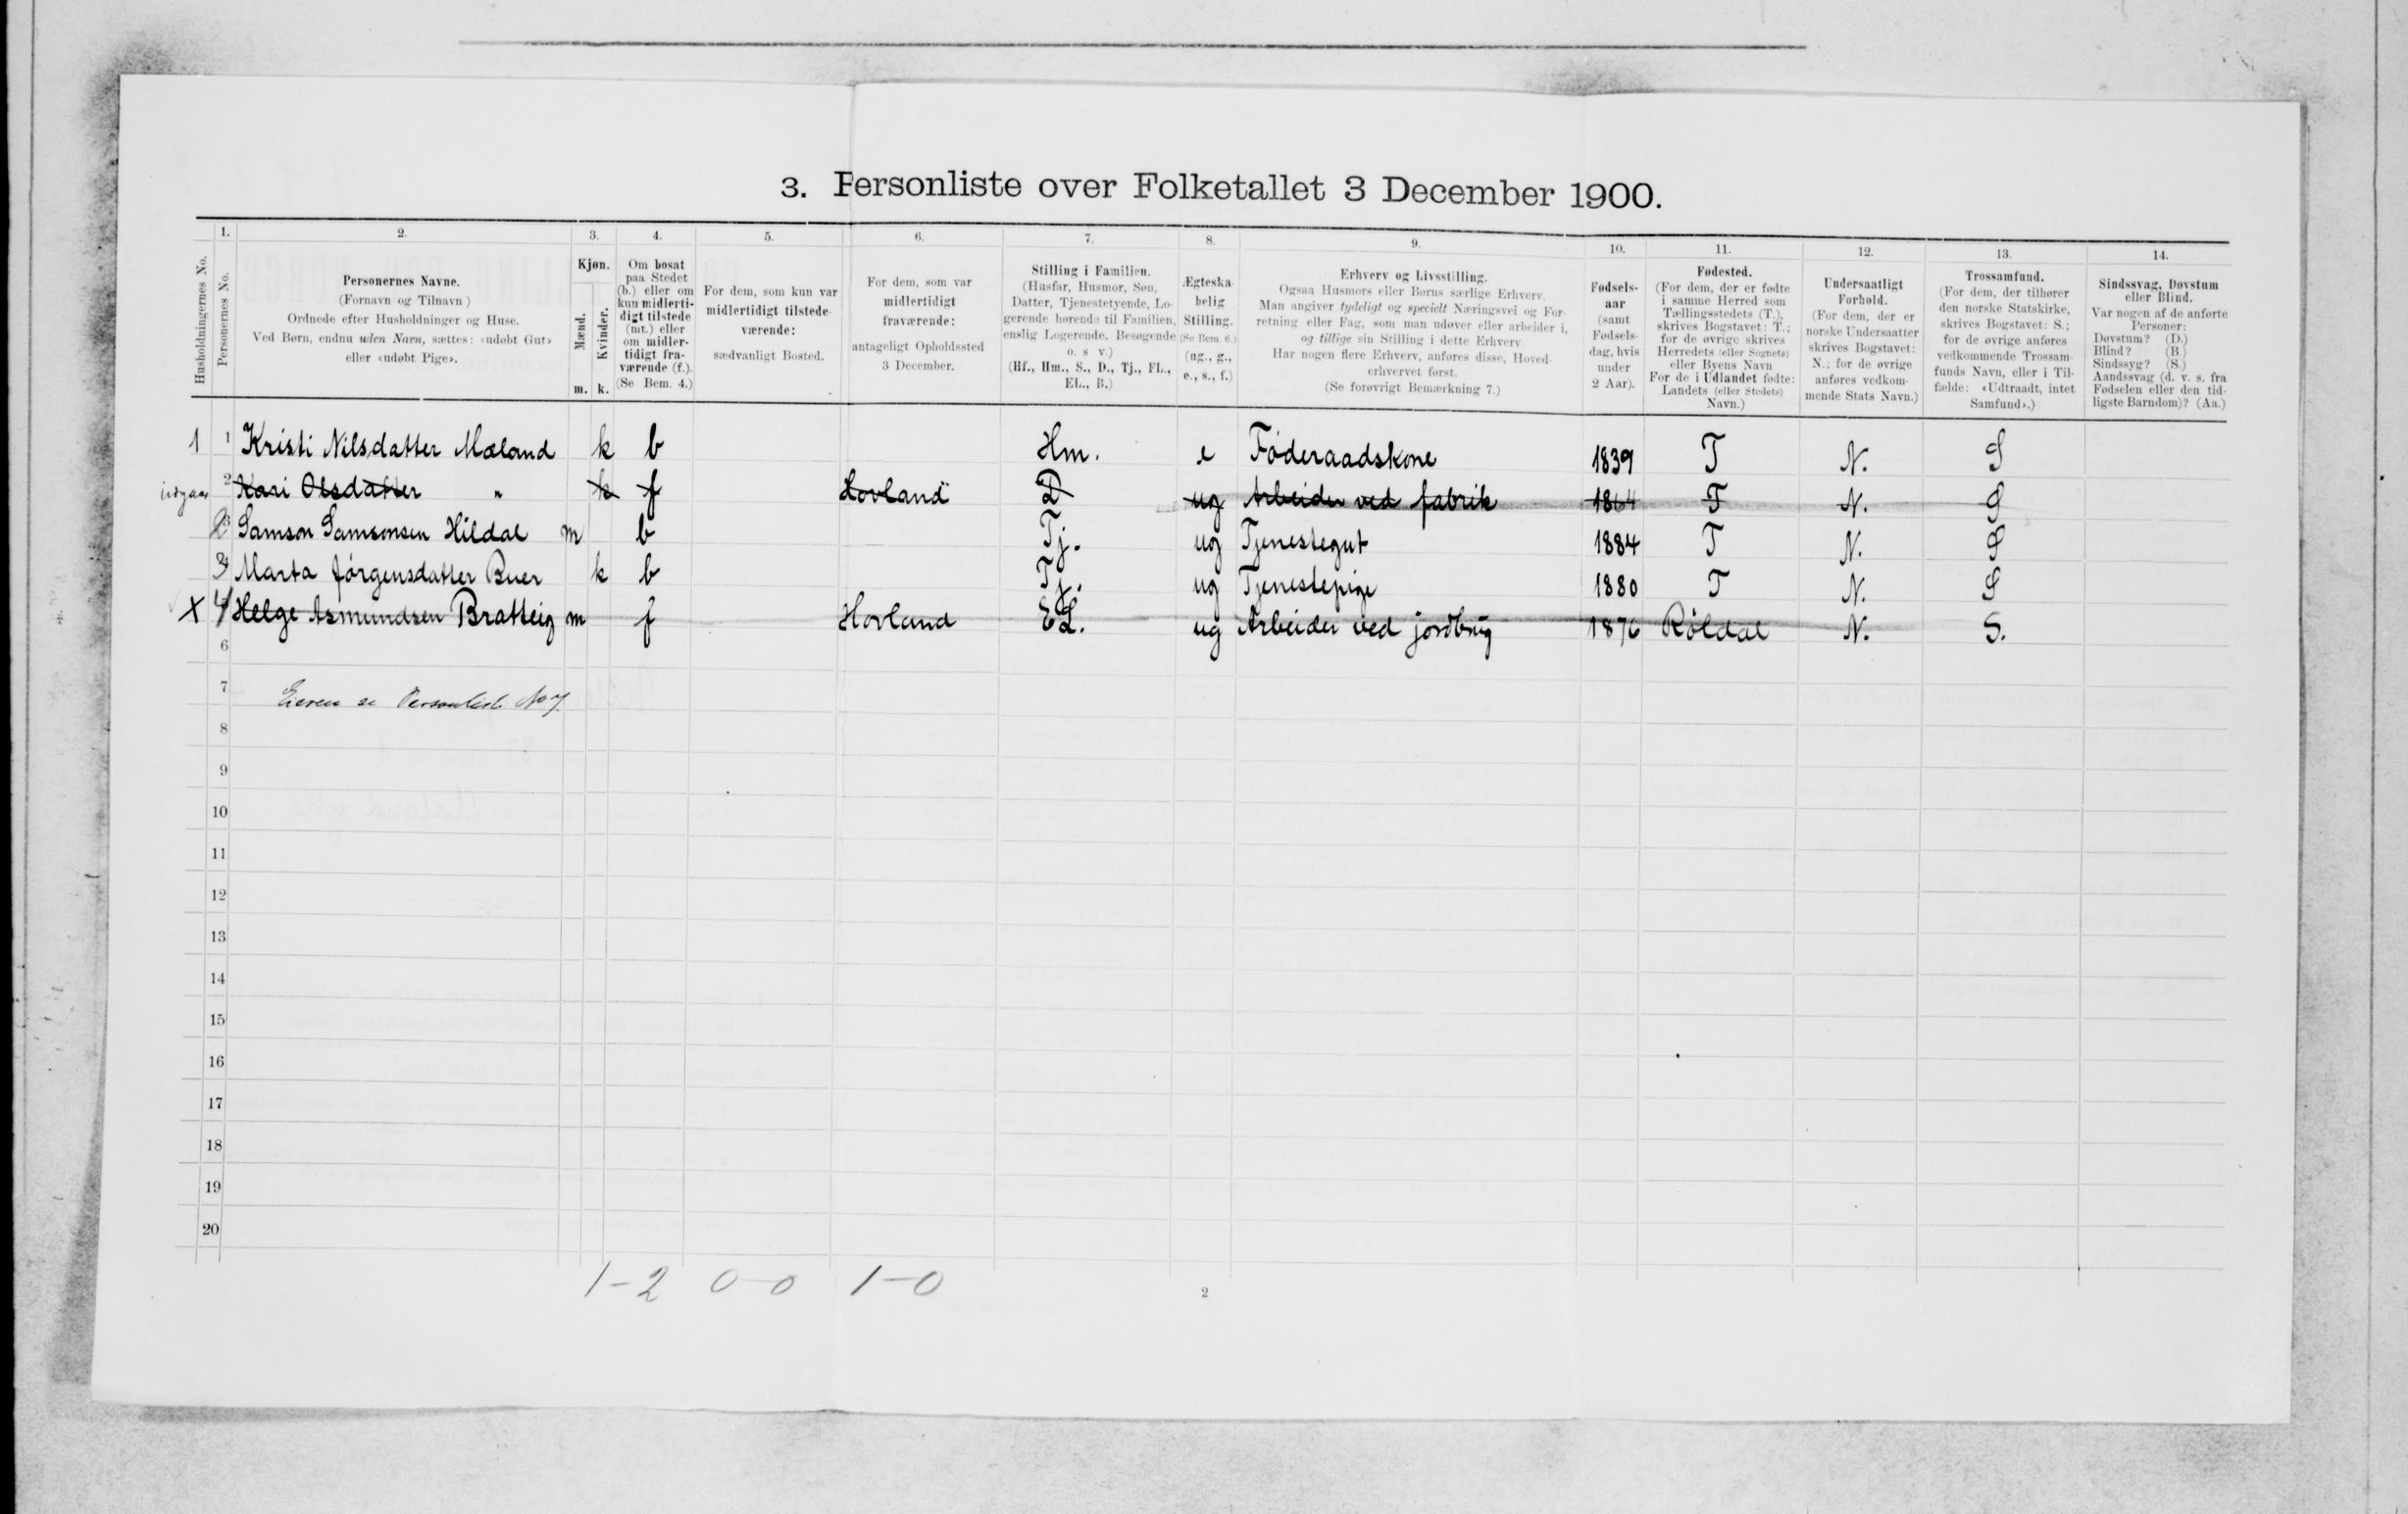 3. Personliste over Folketallet 3 December 1900.
1. 2. 3. 4. 5. 6. 7. 8. 9. 10. 11. 12. 13. 14.
Husholdningernes No.
Personernes No.
Personernes Navne.
(Fornavn og Tilnavn)
Ordnede efter Husholdninger og Huse.
Ved Børn, endnu uden Navn, sættes: «udøbt Gut»
eller «udøbt Pige».
Kjøn.
Mænd.
Kvinder.
m. k.
Om bosat
paa Stedet
(b.) eller om
kun midlerti-
digt tilstede
(mt.) eller
om midler-
tidigt fra-
værende (f.).
(Se Bem. 4.)
For dem, som kun var
midlertidigt tilstede-
værende:
sædvanligt Bosted.
For dem, som var
midlertidigt
fraværende:
antageligt Opholdssted
3 December.
Stilling i Familien.
(Husfar, Husmor, Søn,
Datter, Tjenestetyende, Lo-
gerende hørende til Familien,
enslig Logerende, Besøgende
o. s v.)
(Hf., Hm., S., D., Tj., FL.,
EL., B.)
Ægteska-
belig
Stilling.
(Se Bem. 6.)
(ug., g.,
e., s., f.)
Erhverv og Livsstilling.
Ogsaa Husmors eller Børns særlige Erhverv.
Man angiver tydeligt og specielt Næringsvei og For-
retning eller Fag, som man udøver eller arbeider i,
og tillige sin Stilling i dette Erhverv.
Har nogen flere Erhverv, anføres disse, Hoved-
erhvervet først.
(Se forøvrigt Bemærkning 7.)
Fødsels-
aar
(samt
Fødsels-
dag, hvis
under
2 Aar).
Fødested.
(For dem, der er fødte
i samme Herred som
Tællingsstedets (T.),
skrives Bogstavet: T.;
for de øvrige skrives
Herredets (eller Sognets)
eller Byens Navn
For de i Udlandet fødte:
Landets (eller Stedets)
Navn.)
Undersaatligt
Forhold.
(For dem, der er
norske Undersaatter
skrives Bogstavet:
N.; for de øvrige
anføres vedkom-
mende Stats Navn.)
Trossamfund.
(For dem, der tilhører
den norske Statskirke,
skrives Bogstavet: S.;
for de øvrige anføres
vedkommende Trossam-
funds Navn, eller i Til-
fælde: «Udtraadt, intet
Samfund».)
Sindssvag, Døvstum
eller Blind.
Var nogen af de anførte
Personer:
Døvstum? (D.)
Blind? (B.)
Sindssyg? (S.)
Aandssvag (d. v. s. fra
Fødselen eller den tid-
ligste Barndom)? (Aa.)
1 1 Kristi Nilsdatter Mæland k b Hm. e Føderaadskone 1839 T N. S
udgaar 2 Kari Olsdatter " k f Hovland D ug Arbeider ved fabrik 1864 T N. S
2 Samson Samsonsen Hildal m b Tj. ug Tjenestegut 1884 T N. S
3 Marta Jørgensdatter Buer k b Tj. ug Tjenestepige 1880 T N. S
X 4 Helge Asmundsen Bratteig m f Hovland EL. ug Arbeider ved jordbrug 1876 Røldal N. S.
6
7 Eieren se Personliste No 7
8
9
10
11
12
13
14
15
16
17
18
19
20
1-2 0-0 1-0
2